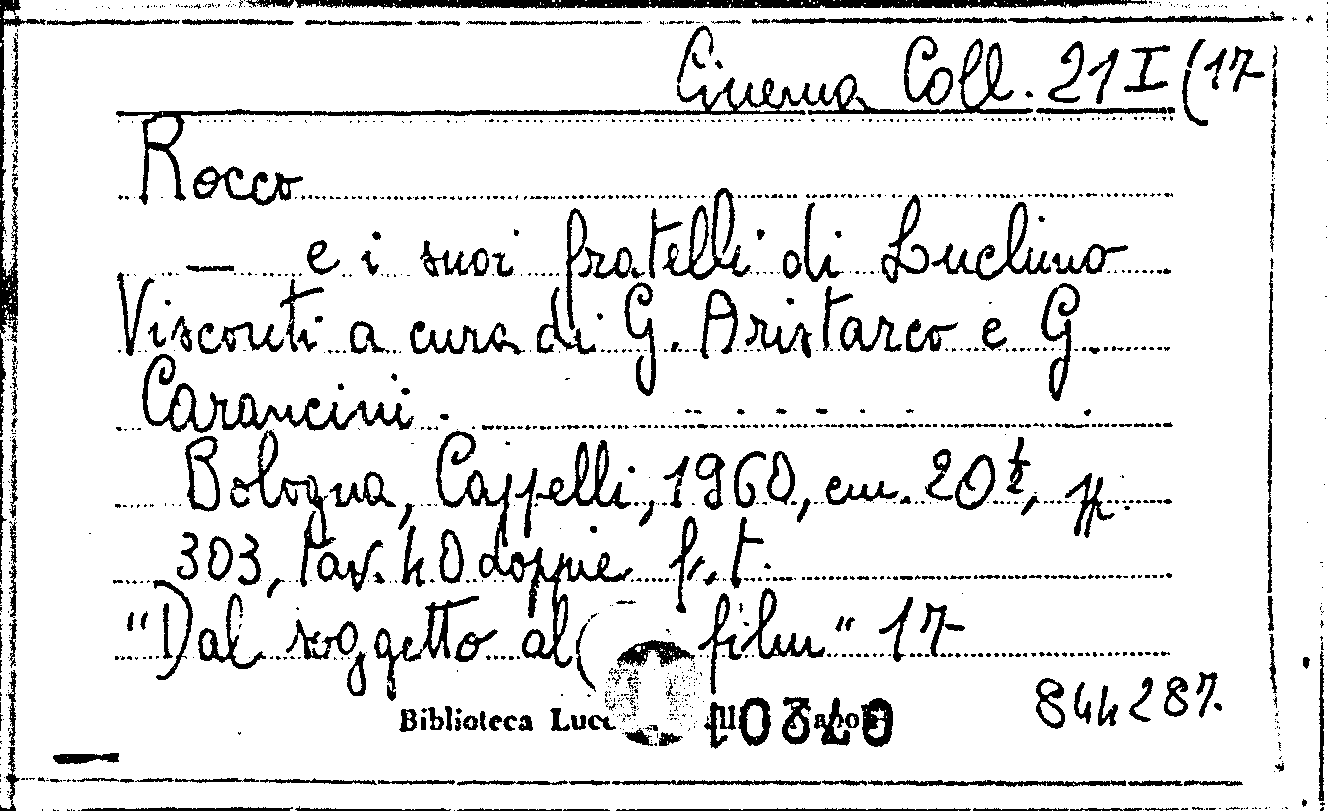 Cinema Coll. 21 I (17
Rocco
— e i suoi fratelli di Luchino
Visconti a cura di G. Aristarco e G.
Carancini.
Bologna, Cappelli, 1960, cm. 20½, pp.
303, tav. 40 doppie f.t.
"Dal soggetto al film" 17
Biblioteca
844287.